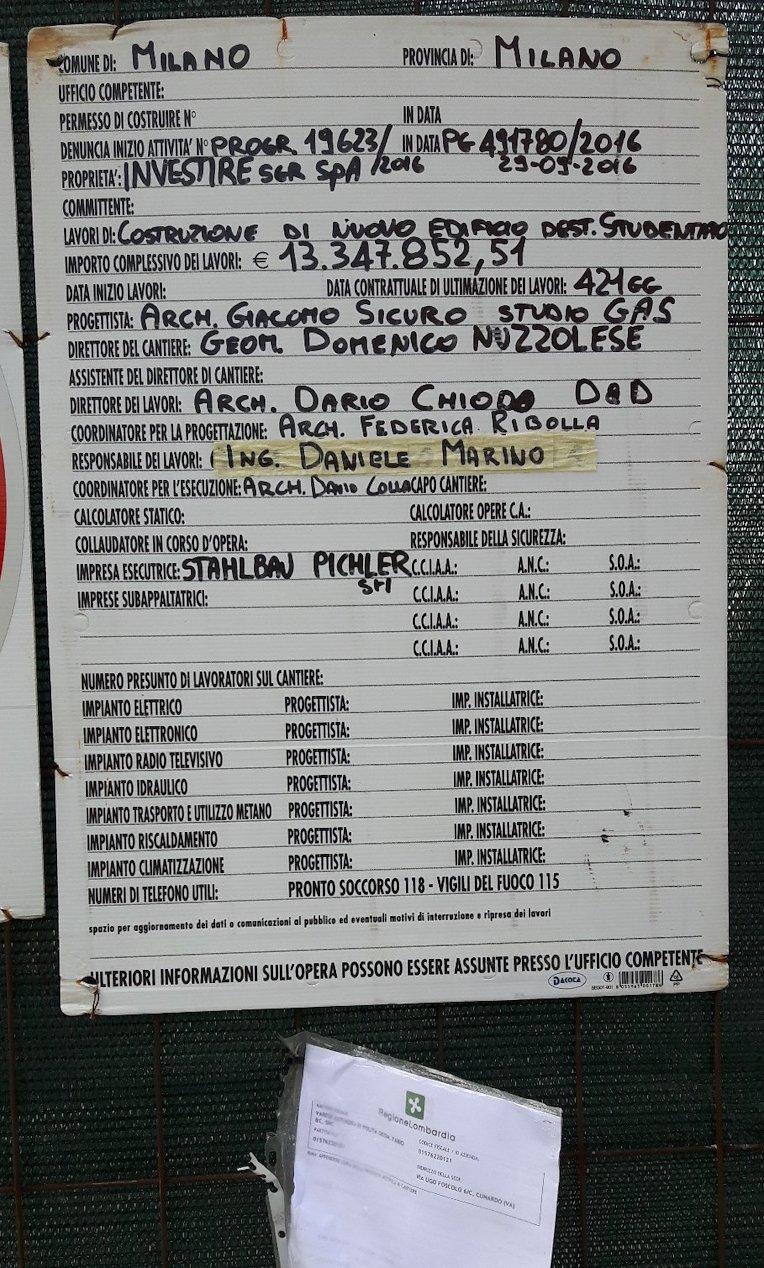 COMUNE DI: MILANO PROVINCIA DI: MILANO
UFFICIO COMPETENTE:
PERMESSO DI COSTRUIRE N° IN DATA
DENUNCIA INIZIO ATTIVITA' N° PROGR 19623/ IN DATA PG 491780/2016
PROPRIETA': INVESTIRE SGR SpA /2016 29-09-2016
COMMITTENTE:
LAVORI DI: COSTRUZIONE DI NUOVO EDIFICIO DEST. STUDENTATO
IMPORTO COMPLESSIVO DEI LAVORI: € 13.347.852,51
DATA INIZIO LAVORI: DATA CONTRATTUALE DI ULTIMAZIONE DEI LAVORI: 421 GG
PROGETTISTA: ARCH. GIACOMO SICURO STUDIO GAS
DIRETTORE DEL CANTIERE: GEOM. DOMENICO NUZZOLESE
ASSISTENTE DEL DIRETTORE DI CANTIERE:
DIRETTORE DEI LAVORI: ARCH. DARIO CHIODO
COORDINATORE PER LA PROGETTAZIONE: ARCH. FEDERICA RIBOLLA
RESPONSABILE DEI LAVORI: ING. DANIELE MARINO
COORDINATORE PER L'ESECUZIONE: ARCH. DARIO COLLA CAPO CANTIERE:
CALCOLATORE STATICO: CALCOLATORE OPERE C.A.:
COLLAUDATORE IN CORSO D'OPERA: RESPONSABILE DELLA SICUREZZA:
IMPRESA ESECUTRICE: STAHLBAU PICHLER srl C.C.I.A.A.: A.N.C.: S.O.A.:
IMPRESE SUBAPPALTATRICI: C.C.I.A.A.: A.N.C.: S.O.A.:
C.C.I.A.A.: A.N.C.: S.O.A.:
C.C.I.A.A.: A.N.C.: S.O.A.:
NUMERO PRESUNTO DI LAVORATORI SUL CANTIERE:
IMPIANTO ELETTRICO PROGETTISTA: IMP. INSTALLATRICE:
IMPIANTO ELETTRONICO PROGETTISTA: IMP. INSTALLATRICE:
IMPIANTO RADIO TELEVISIVO PROGETTISTA: IMP. INSTALLATRICE:
IMPIANTO IDRAULICO PROGETTISTA: IMP. INSTALLATRICE:
IMPIANTO TRASPORTO E UTILIZZO METANO PROGETTISTA: IMP. INSTALLATRICE:
IMPIANTO RISCALDAMENTO PROGETTISTA: IMP. INSTALLATRICE:
IMPIANTO CLIMATIZZAZIONE PROGETTISTA: IMP. INSTALLATRICE:
NUMERI DI TELEFONO UTILI: PRONTO SOCCORSO 118 - VIGILI DEL FUOCO 115
spazio per aggiornamento dei dati o comunicazioni al pubblico ed eventuali motivi di interruzione e ripresa dei lavori
ULTERIORI INFORMAZIONI SULL'OPERA POSSONO ESSERE ASSUNTE PRESSO L'UFFICIO COMPETENTE
DACOCA
PP
RegioneLombardia
CODICE FISCALE / ID AZIENDA:
01576220121
INDIRIZZO DELLA SEDE
VIA UGO FOSCOLO 6/C, CUNARDO (VA)